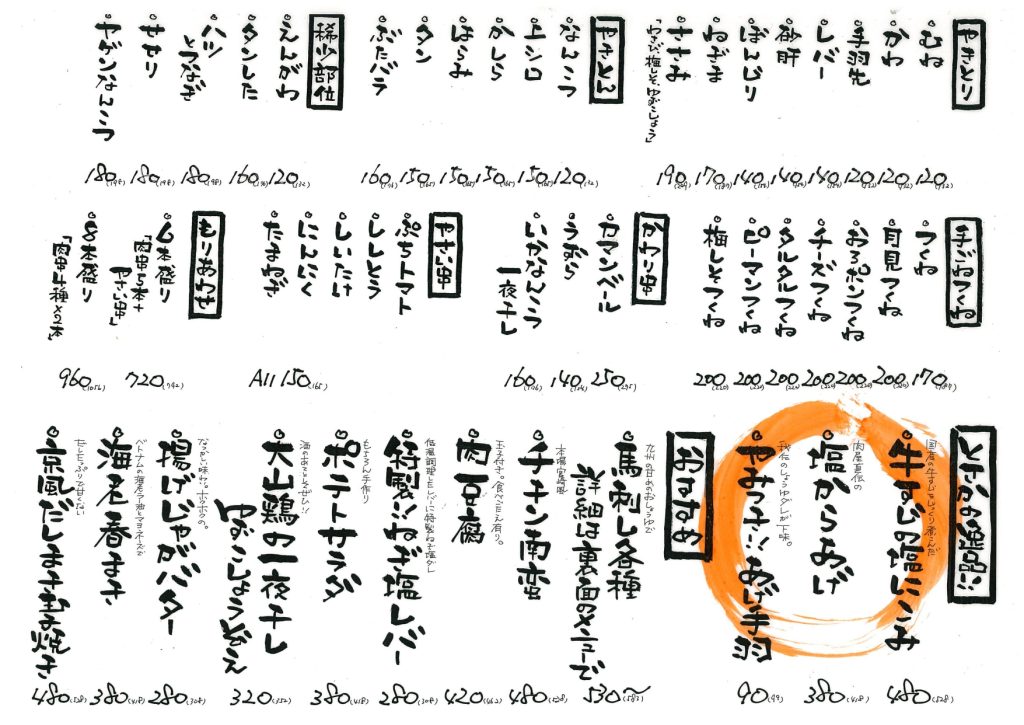 やきとり
むね 120(132)
かわ 120(132)
手羽先 120(132)
レバー 140(154)
砂肝 140(154)
ぼんじり 140(154)
ねぎま 170(187)
ささみ 190(209)
「わさび、梅しそ、ゆずこしょう」
やきとん
なんこつ 120(132)
上シロ 150(165)
かしら 150(165)
はらみ 150(165)
タン 150(165)
ぶたバラ 160(176)
稀少部位
えんがわ 120(132)
タンした 160(176)
ハツ
とつなぎ 180(198)
せせり 180(198)
ヤゲンなんこつ 180(198)
手ごねつくね
つくね 170(187)
月見つくね 200(220)
おろポンつくね 200(220)
チーズつくね 200(220)
タルタルつくね 200(220)
ピーマンつくね 200(220)
梅しそつくね 200(220)
かわり串
カマンベール 250(275)
うずら 140(154)
いかなんこつ
一夜干し 160(176)
やさい串
ぷちトマト
ししとう
しいたけ
にんにく
たまねぎ
All 150(165)
もりあわせ
6本盛り 720(792)
「肉串5本+
やさい串」
8本盛り 960(1056)
「肉串4種×2本」
とさかの絶品!!
国産の牛すじをじっくり煮こんだ
牛すじの塩にこみ 480(528)
肉屋直伝の
塩からあげ 380(418)
秘伝のしょうゆダレが下味。
やみつき!!あげ手羽 90(99)
おすすめ
九州の甘めのおしょうゆで
馬刺し各種
詳細は裏面のメニューで 530〜(583)
本場宮崎風
チキン南蛮 480(528)
玉子付き。食べごたえ有り。
肉豆腐 420(462)
低温調理したレバーに特製ねぎ塩ダレ
特製!!ねぎ塩レバー 280(308)
もちろん手作り
ポテトサラダ 380(418)
酒のあてとしてぜひ!!
大山鶏の一夜干し
ゆずこしょうぞえ 320(352)
なつかしい味わい。ホクホクの。
揚げじゃがバター 280(308)
ベトナムの海老アテ油とマヨネーズで
海老春まき 380(418)
だしたっぷりで甘くない
京風だしまき玉子焼き 480(528)